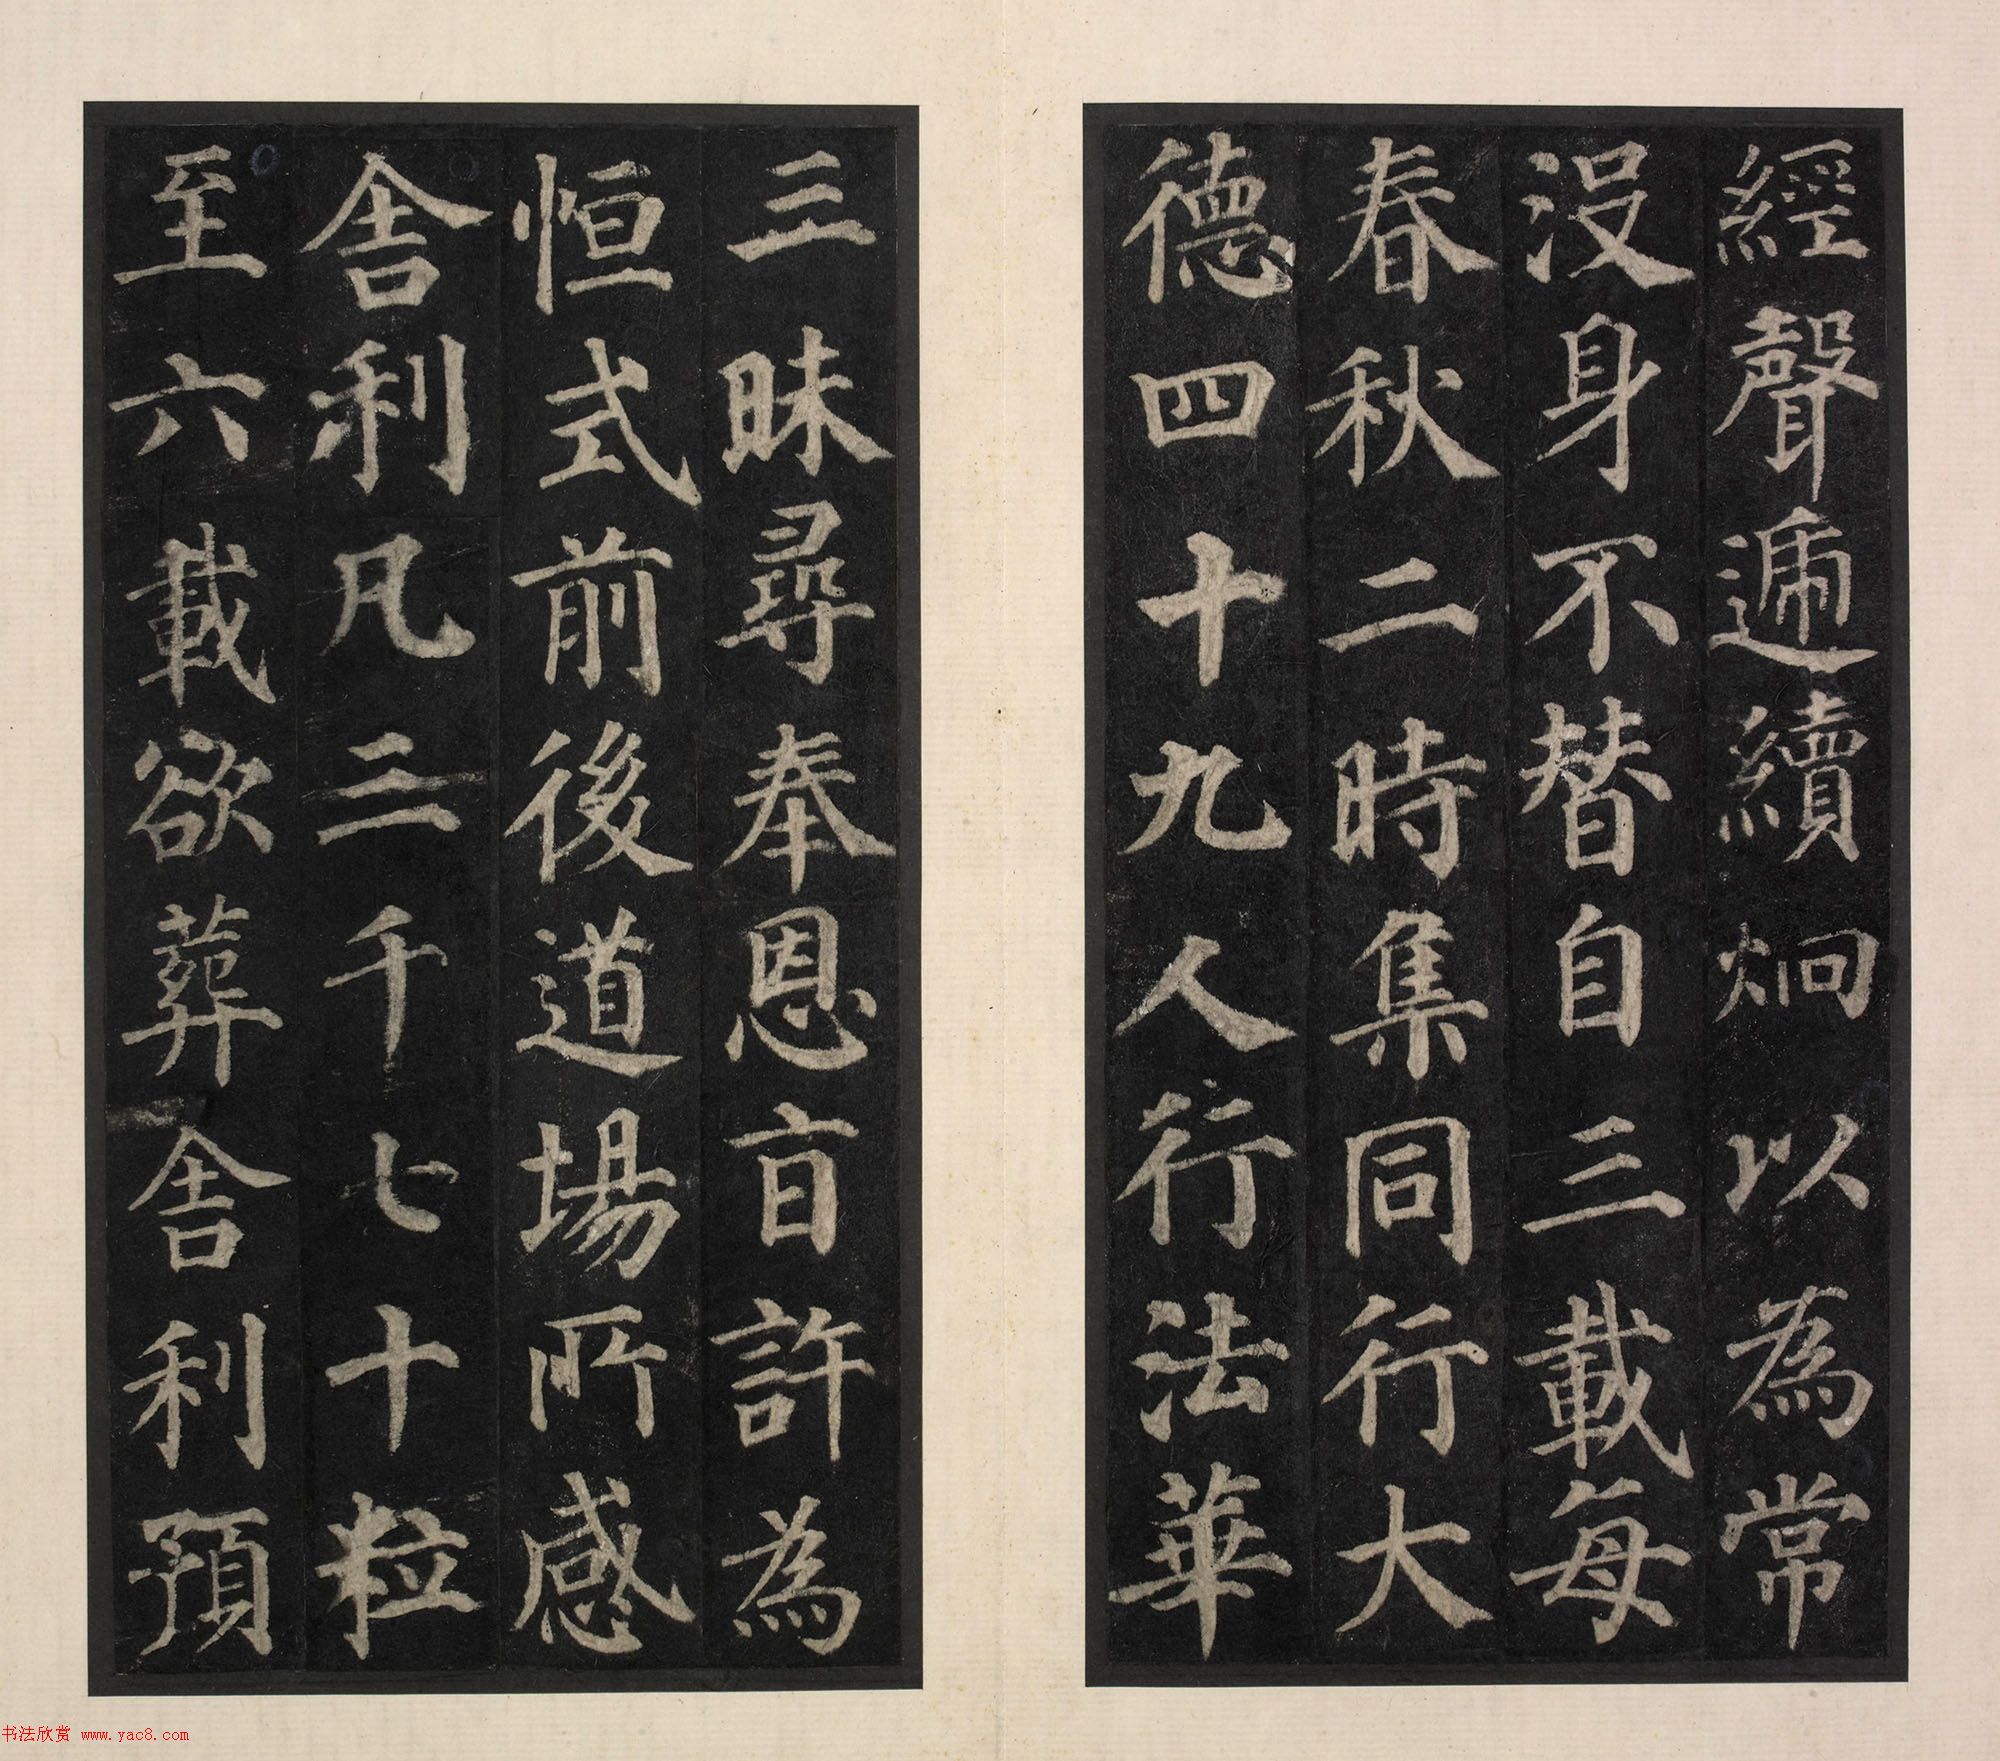 經聲遞續炯以為常
没身不替自三載每
春秋二時集同行大
德四十九人行法華
三昧尋奉恩㫖許為
恒式前後道場所感
舍利凡三千七十粒
至六載欲葬舍利預
书法欣赏 www.yac8.com